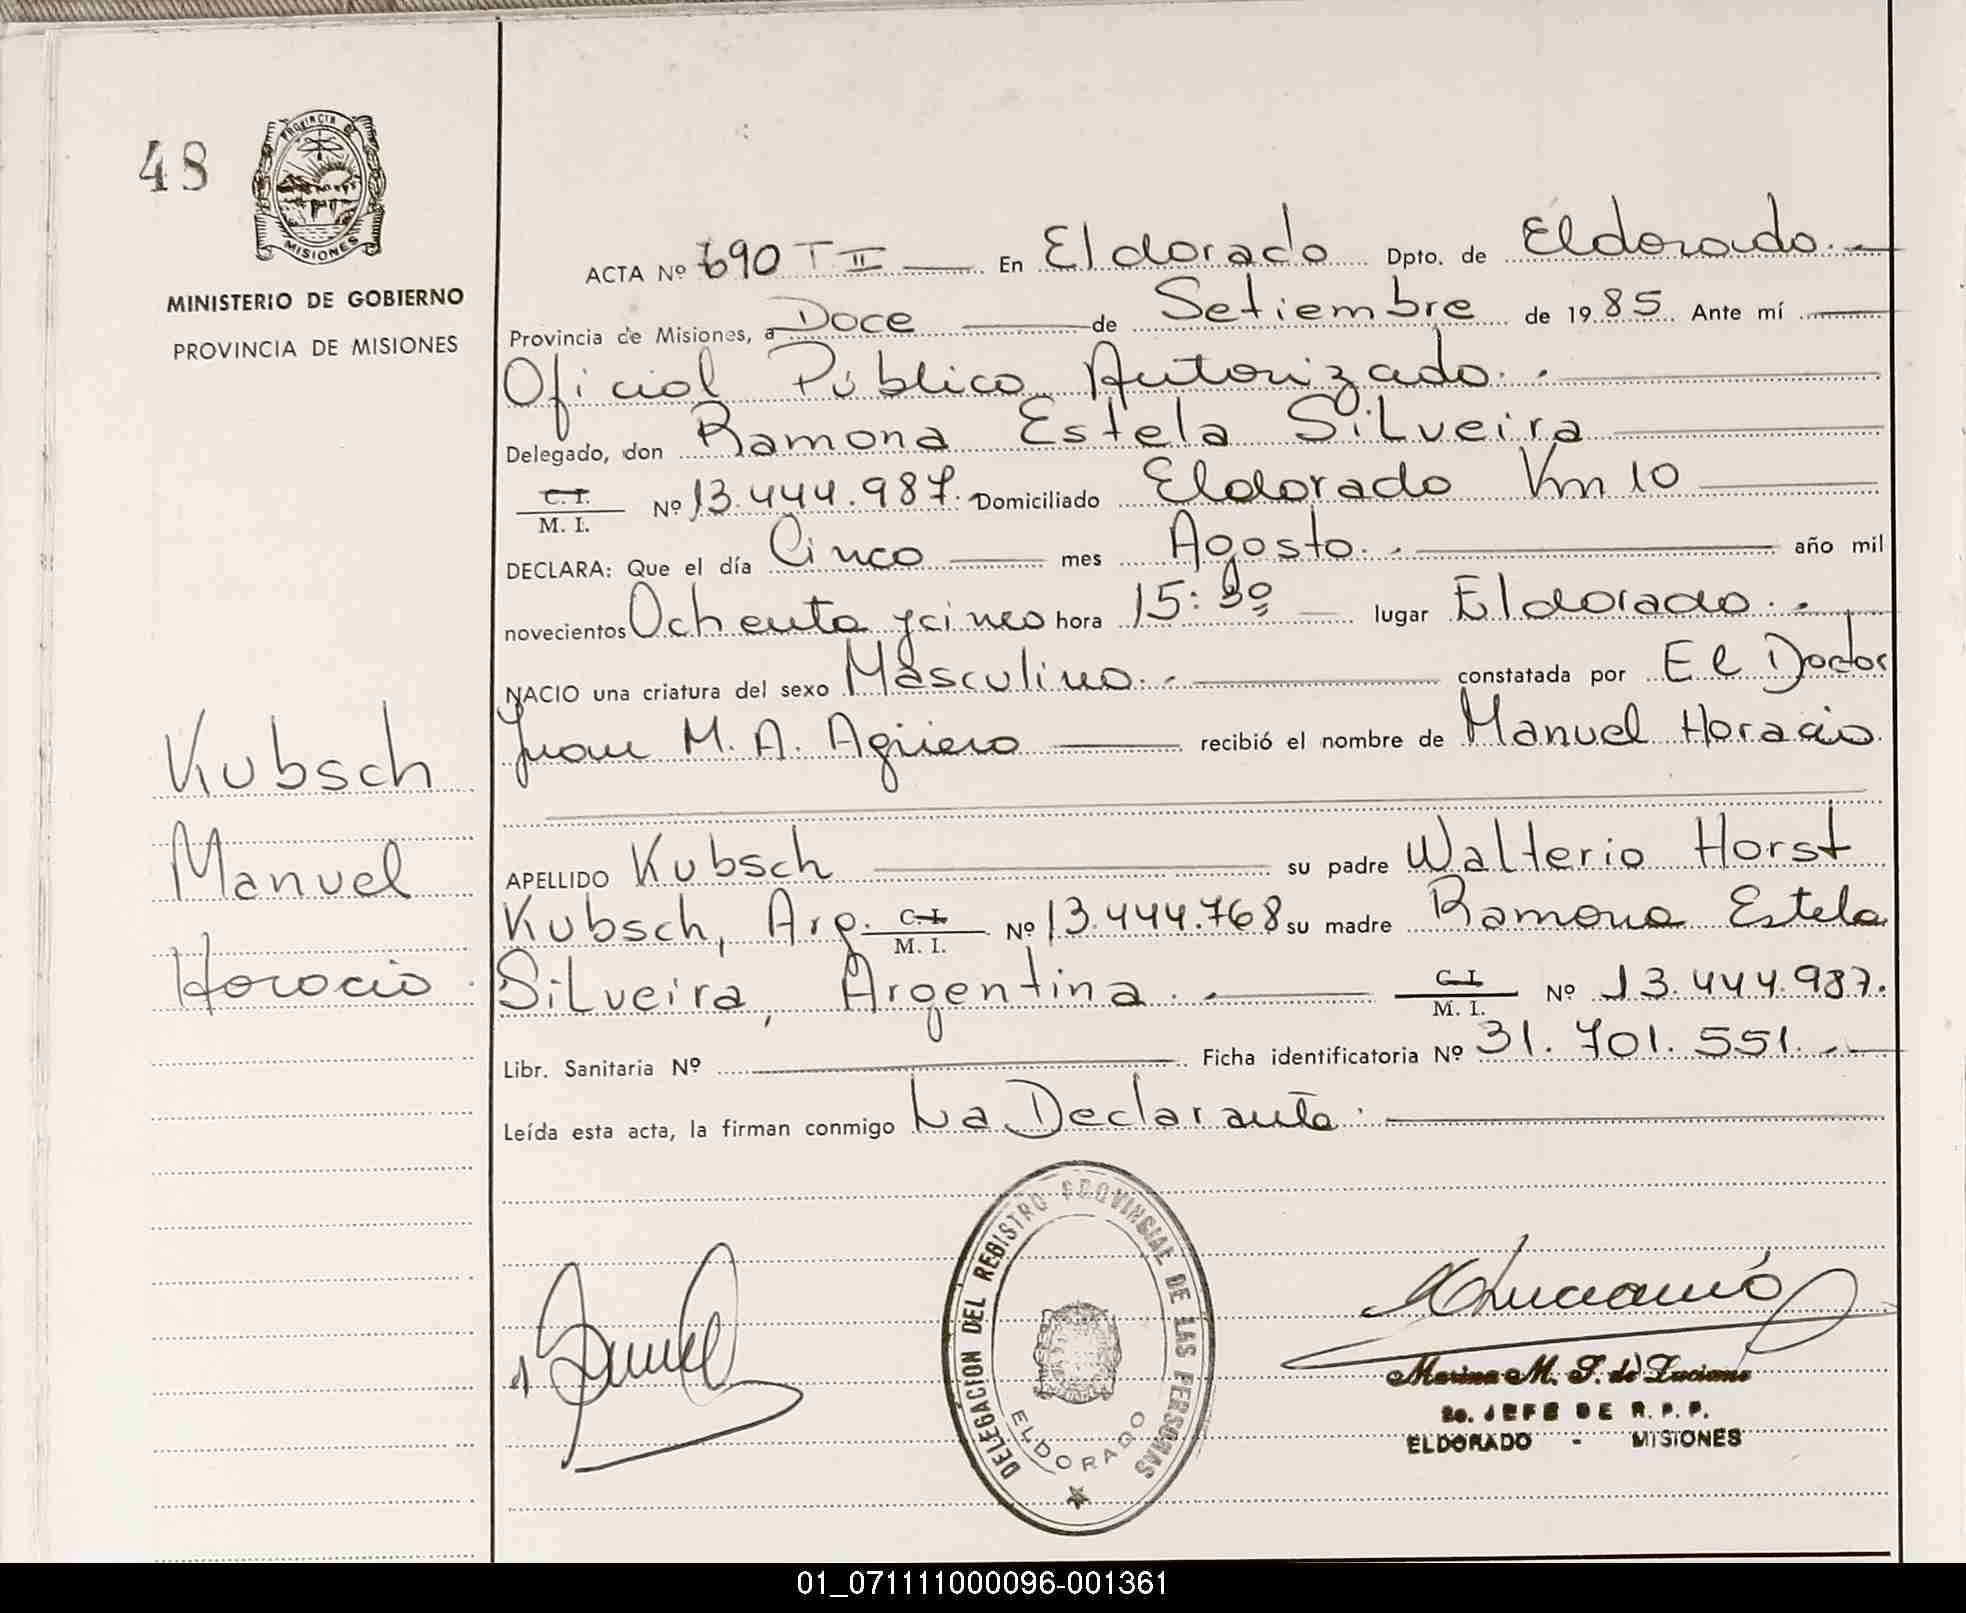 48
PROVINCIA DE
MISIONES
MINISTERIO DE GOBIERNO
PROVINCIA DE MISIONES
ACTA Nº 690 T II En Eldorado Dpto. de Eldorado.-
Provincia de Misiones, a Doce de Setiembre de 1985 Ante mí
Oficial Público Autorizado.-
Delegado, don Ramona Estela Silveira
C.I. / M.I. Nº 13.444.987. Domiciliado Eldorado Km 10
DECLARA: Que el día Cinco mes Agosto.- año mil
novecientos Ochenta y cinco hora 15:30 lugar Eldorado.-
NACIO una criatura del sexo Masculino.- constatada por El Doctor
Juan M. A. Agüero recibió el nombre de Manuel Horacio
Kubsch
Manuel
Horacio
APELLIDO Kubsch su padre Walterio Horst
Kubsch, Arg. C.I. / M.I. Nº 13.444.768 su madre Ramona Estela
Silveira, Argentina.- C.I. / M.I. Nº 13.444.987.
Libr. Sanitaria Nº Ficha identificatoria Nº 31.701.551.-
Leída esta acta, la firman conmigo La Declarante.
DELEGACION DEL REGISTRO PROVINCIAL DE LAS PERSONAS
ELDORADO
Marina M. S. de Luciano
2o. JEFE DE R.P.P.
ELDORADO - MISIONES
01_071111000096-001361